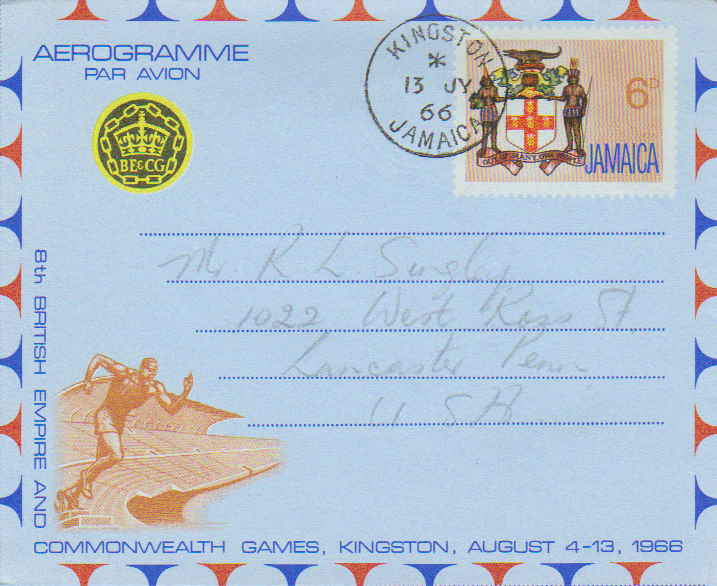 AEROGRAMME
PAR AVION
BE&CG
KINGSTON
*
13 JY
66
JAMAICA
6D
OUT OF MANY ONE PEOPLE
JAMAICA
Mr. R L.
1022 West Ross St.
Lancaster Penn.
U S A
8th BRITISH EMPIRE AND
COMMONWEALTH GAMES, KINGSTON, AUGUST 4-13, 1966